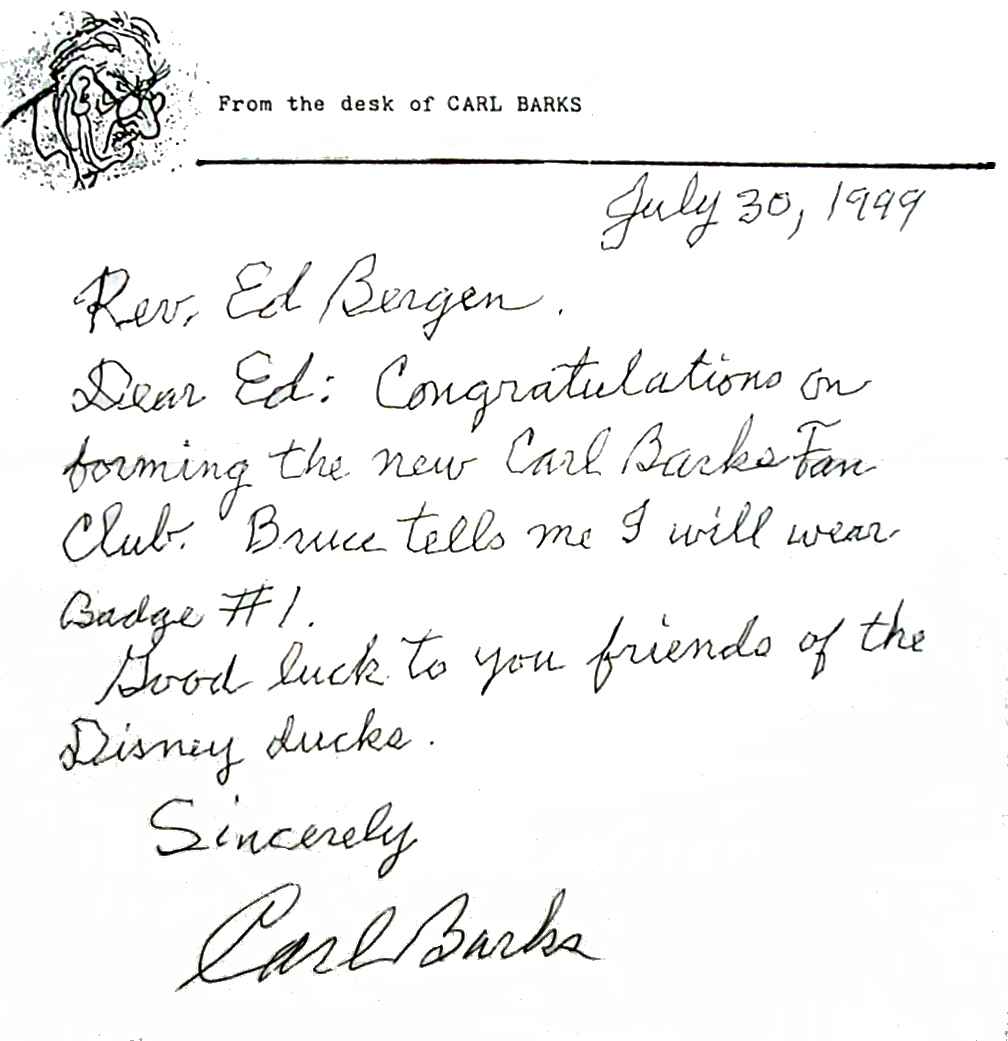 From the desk of CARL BARKS
July 30, 1999
Rev. Ed Bergen.
Dear Ed: Congratulations on
forming the new Carl Barks Fan
Club. Bruce tells me I will wear
Badge #1.
Good luck to you friends of the
Disney ducks.
Sincerely
Carl Barks